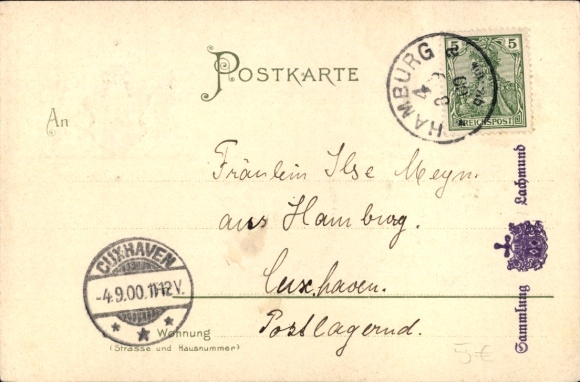 POSTKARTE
HAMBURG
5 5
REICHSPOST
An
Fräulein Ilse Meyn.
aus Hamburg.
Cuxhaven.
Postlagernd.
CUXHAVEN
-4.9.00.11-12V.
Wohnung
(Strasse und Hausnummer)
Sammlung Lachmund
5€